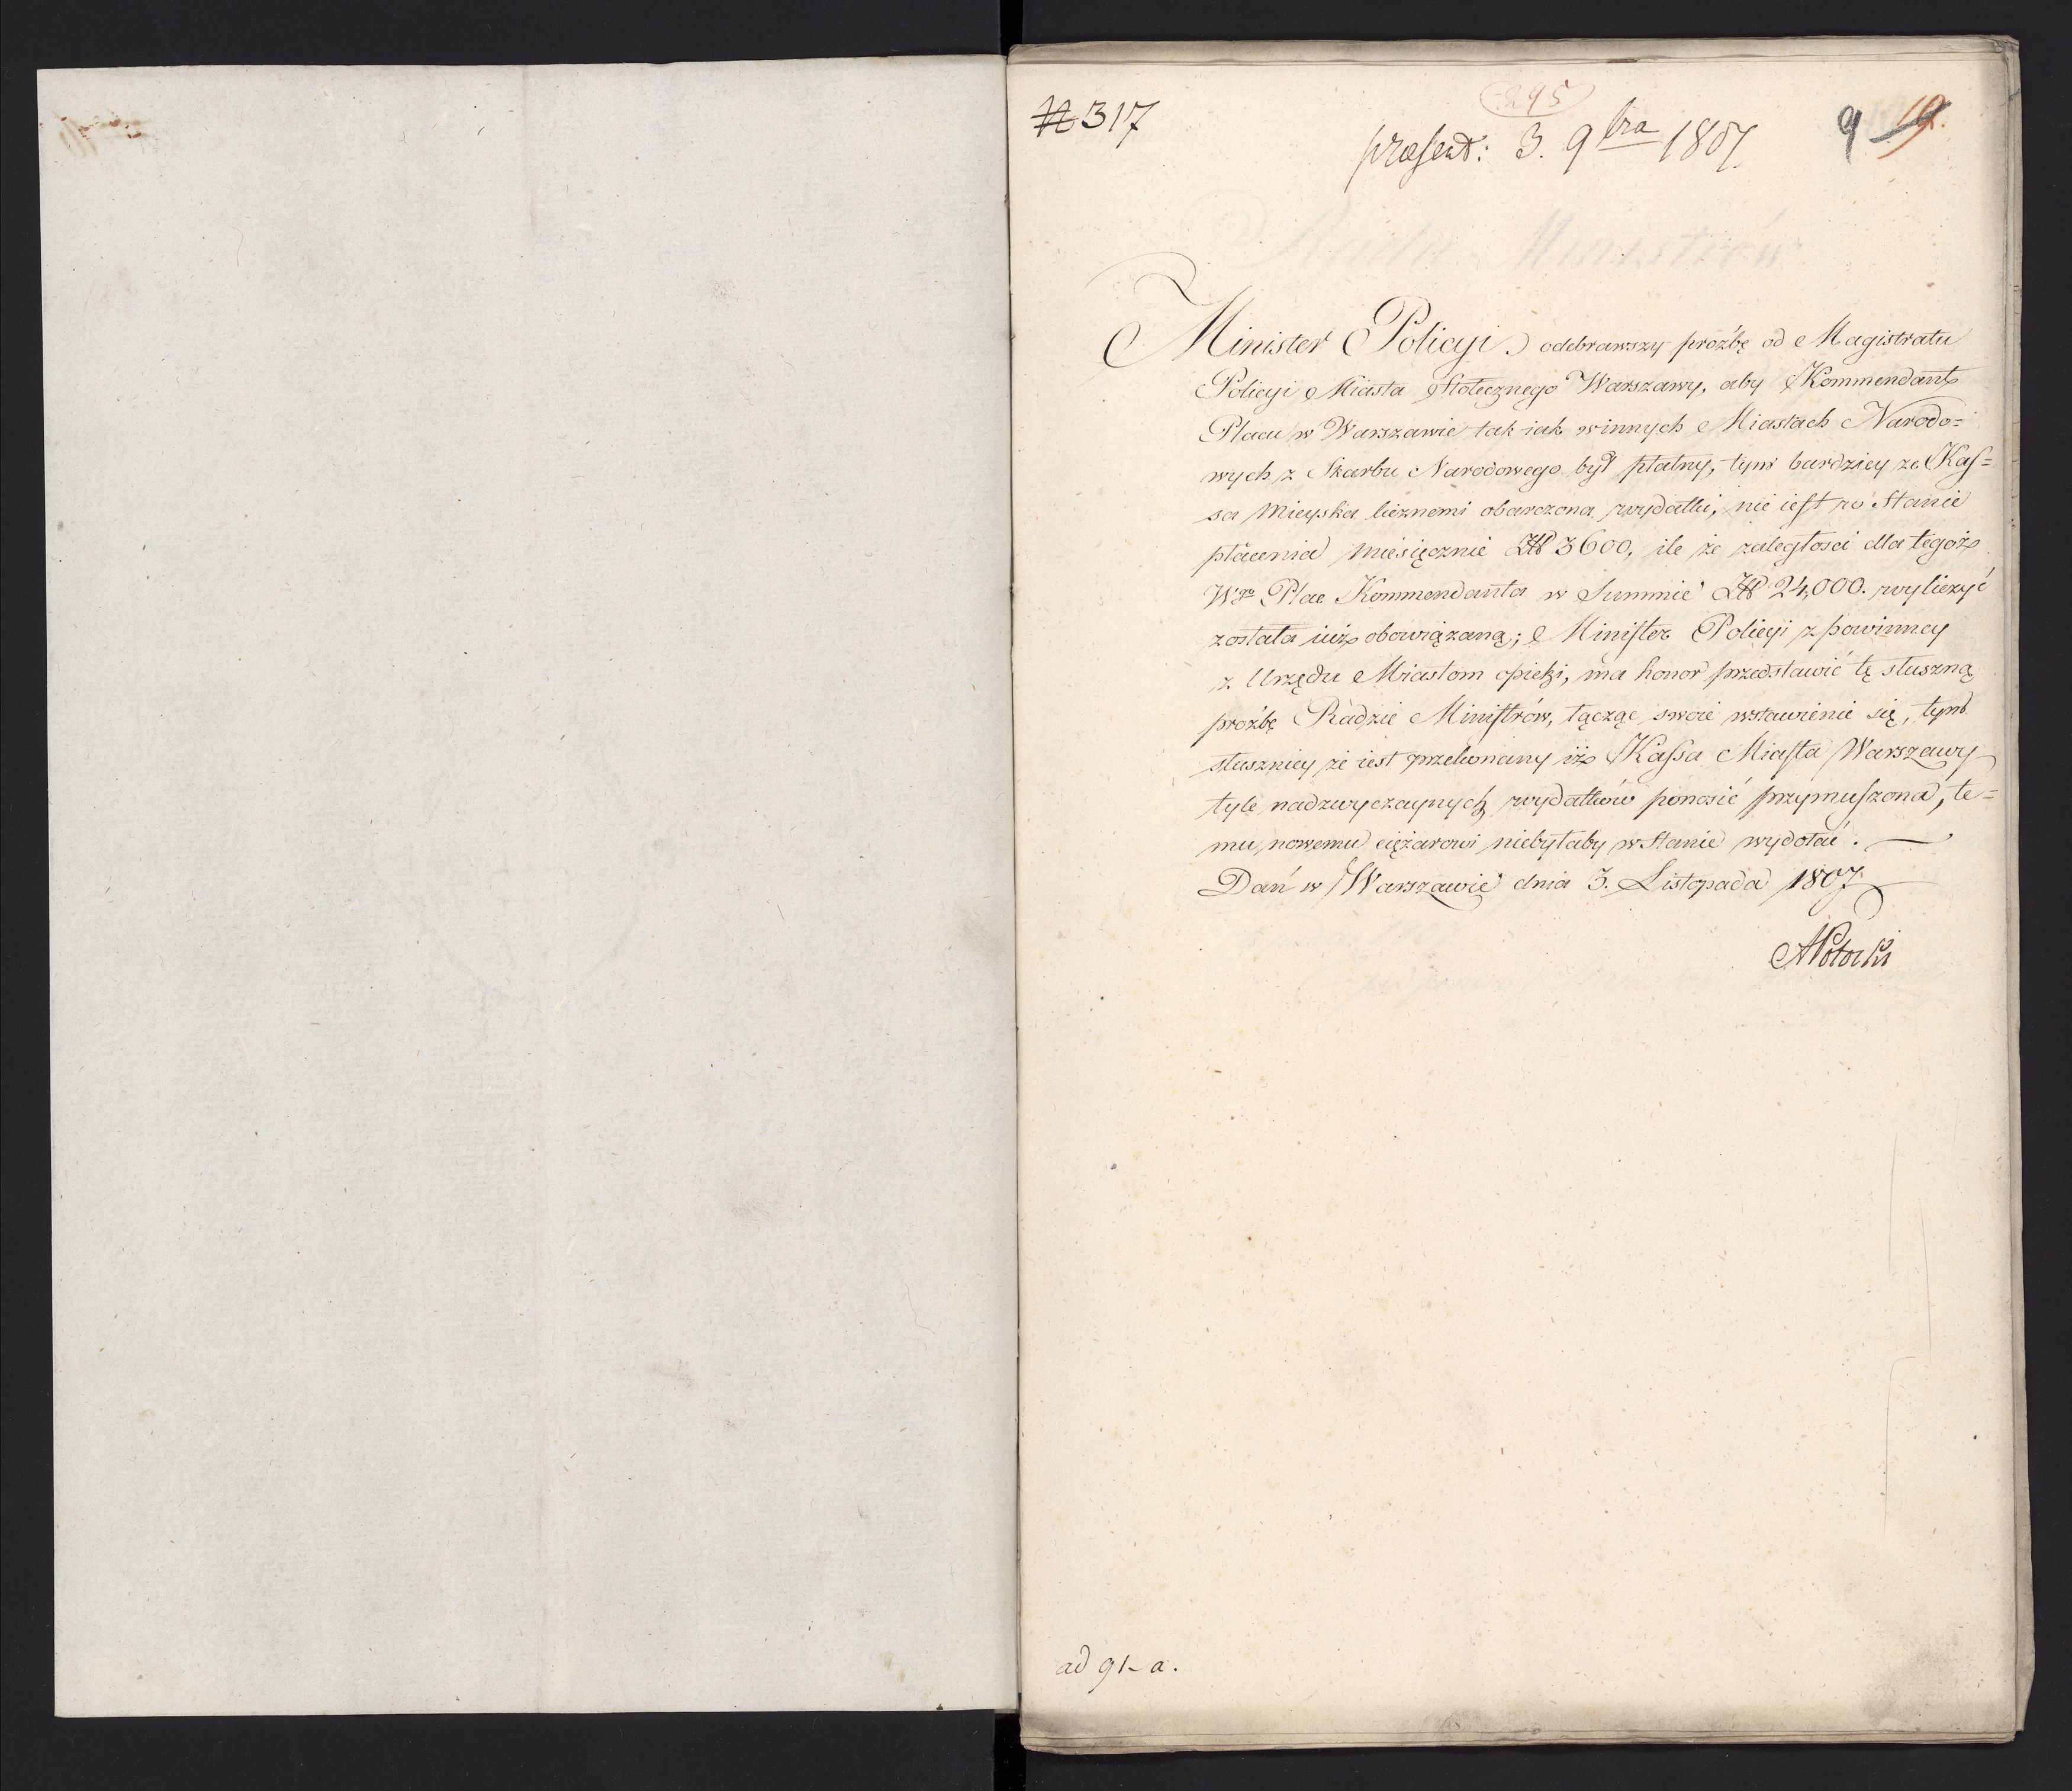 295
N 317
præsent: 3. 9bra 1807
9 19.
Minister Policyi odebrawszy proźbę od Magistratu
Policyi Miasta Stołecznego Warszawy, aby Kommendant
Placu w Warszawie tak iak winnych Miastach Narodo=
wych z Skarbu Narodowego był płatny, tym bardziey ze Kas=
sa Mieyska licznemi obarczona wydatki, nie iest w Stanie
płacenia miesięcznie Zł 3600, ile że zaległości dla tegoż
Wgo Plac Kommendanta w Summie Zł 24,000. wyliczyć
została iuż obowiązaną; Minister Policyi z powinney
z Urzędu Miastom opieki, ma honor przedstawić tę słuszną
proźbę Radzie Ministrów, łącząc swoie wstawienie się, tym
słuszniey że iest przekonany iż Kassa Miasta Warszawy
tyle nadzwyczaynych wydatków ponosić przymuszona, te=
mu nowemu ciężarowi niebyłaby w Stanie wydołać. —
Dań w Warszawie dnia 3. Listopada 1807
APotocki
ad 91-a.